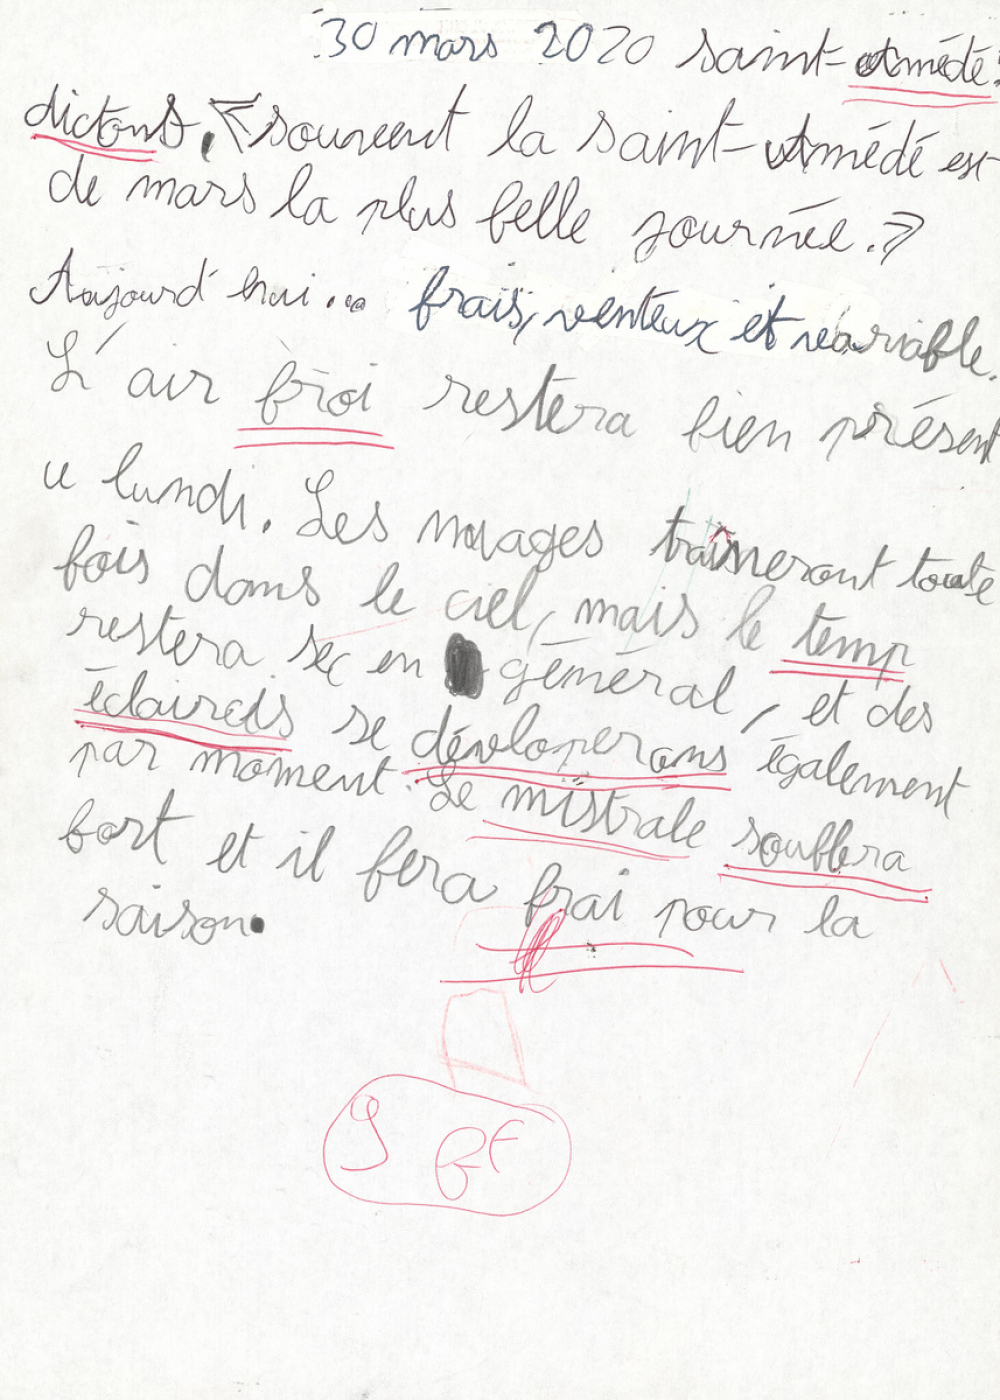 30 mars 2020 saint-Amédé.
dictons. «souvent la saint-Amédé est
de mars la plus belle journée.»
Aujourd'hui... frais, venteux et variable.
L'air froi restera bien présent
u lundi. Les nuages traîneront toute
fois dans le ciel, mais le temp
restera sec en général, et des
éclaircis se dévloperons également
par moment. Le mistrale
fort et il fera frai pour la
soufflera
saison.
9 ff